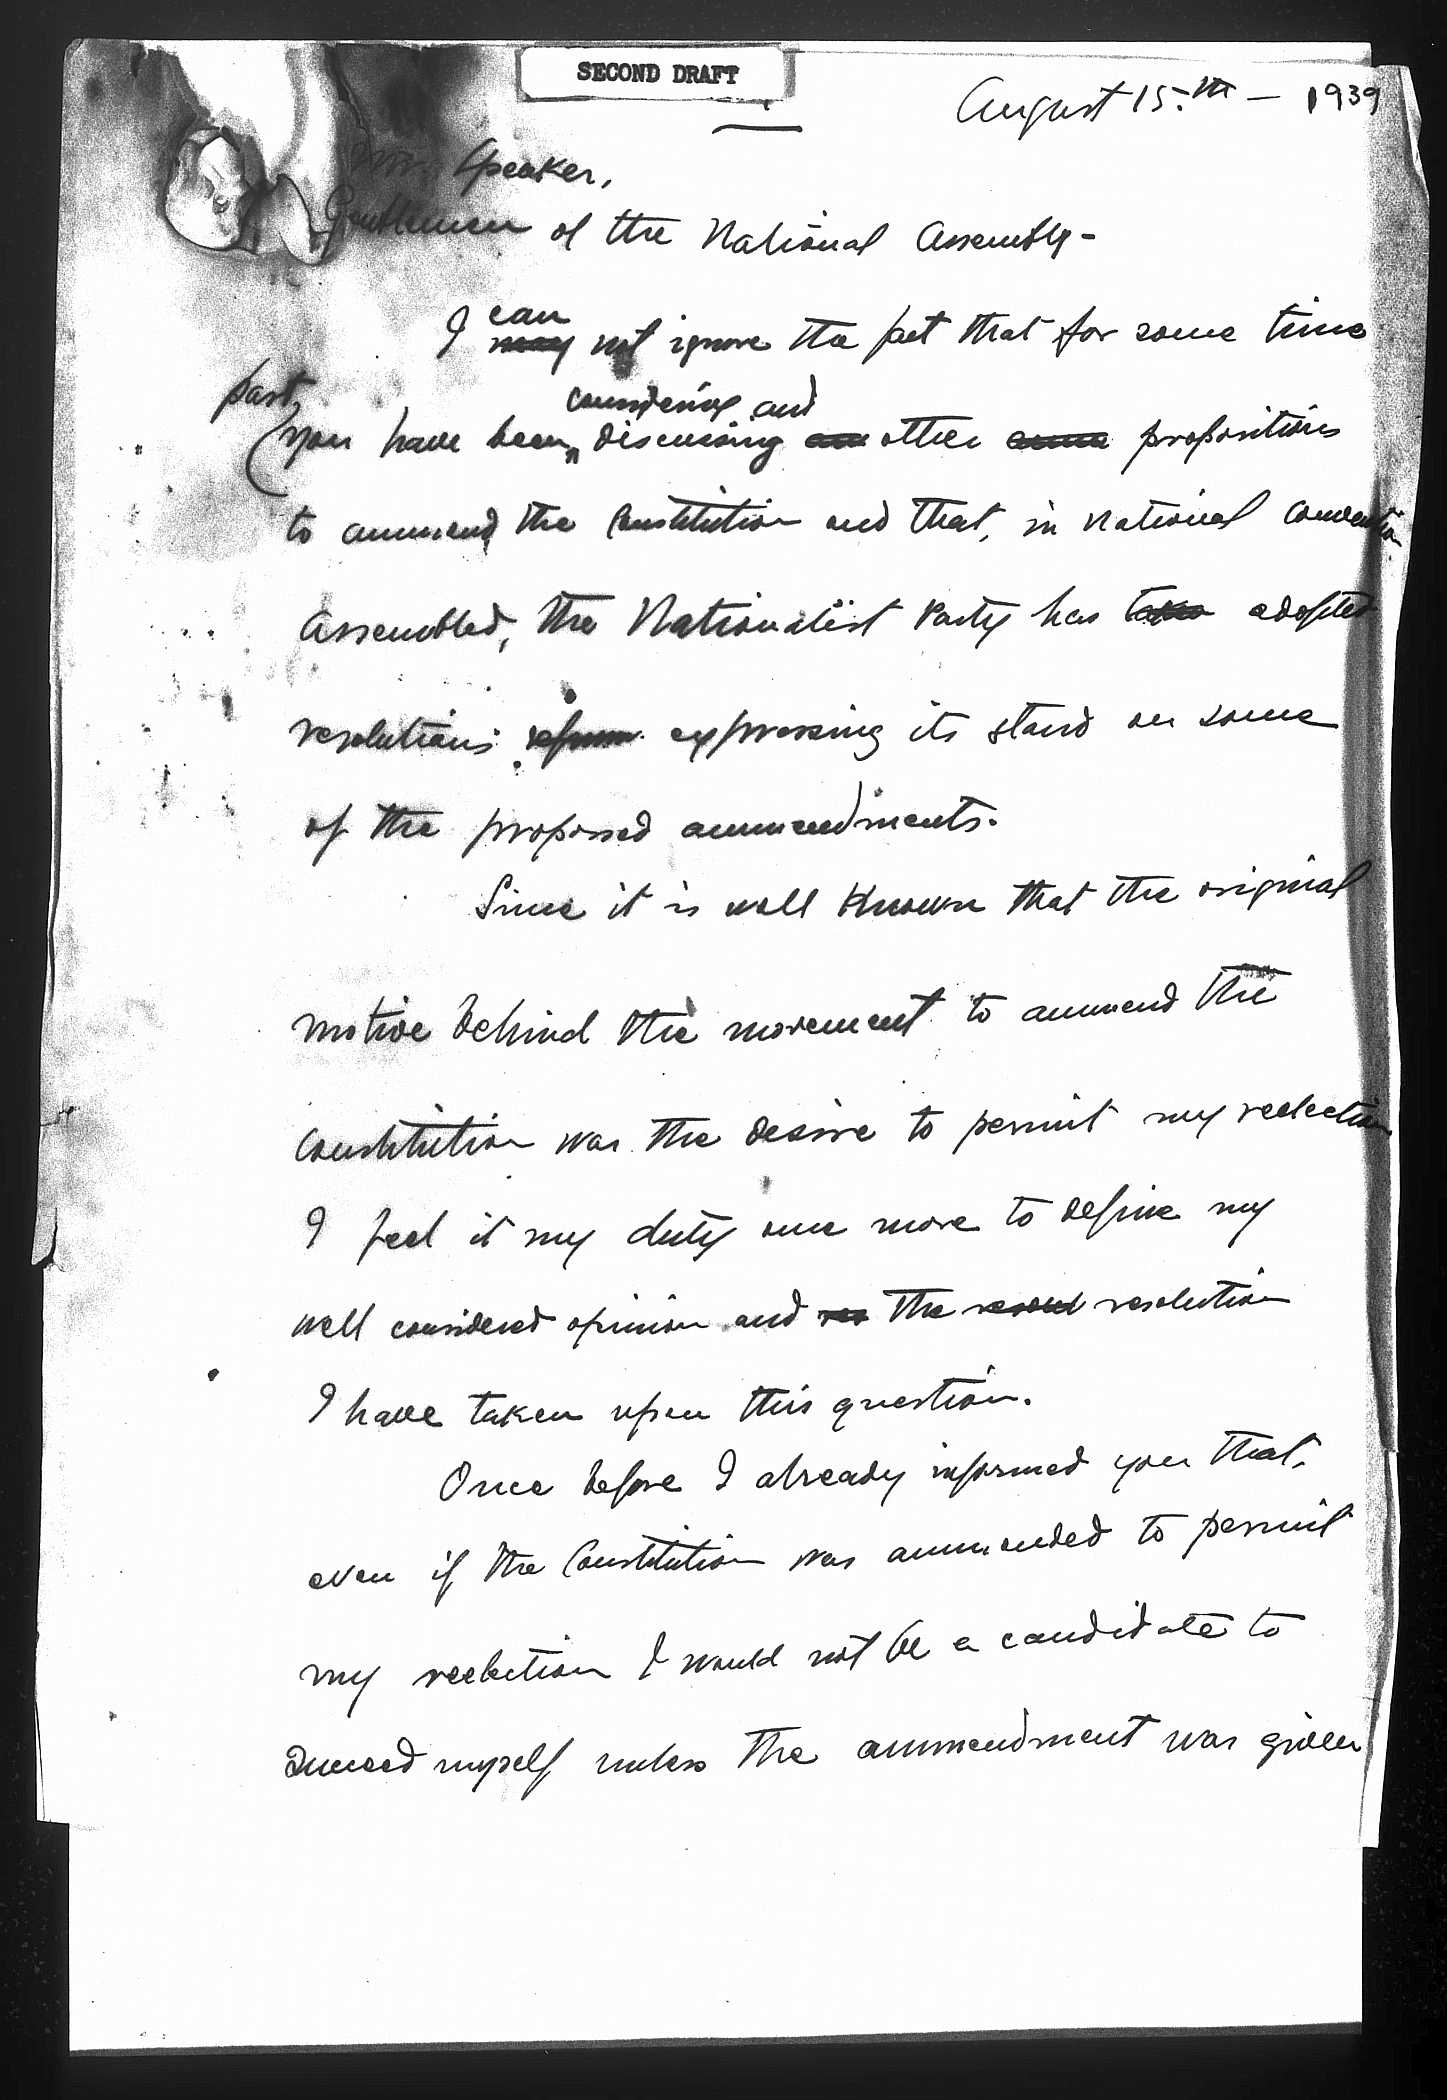 SECOND DRAFT
August 15.th — 1939
Mr. Speaker,
Gentlemen of the National Assembly-
I can not ignore the fact that for some time
past,
considering and
you have been discussing other propositions
to ammend the Constitution and that, in national convention
assembled, the Nationalist Party has adopted
resolutions expressing its stand on some
of the proposed ammendments.
Since it is well known that the original
motive behind the movement to ammend the
constitution was the desire to permit my reelection
I feel it my duty once more to define my
well considered opinion and the resolution
I have taken upon this question.
Once before I already informed you that,
even if the Constitution was ammended to permit
my reelection I would not be a candidate to
succeed myself unless the ammendment was given